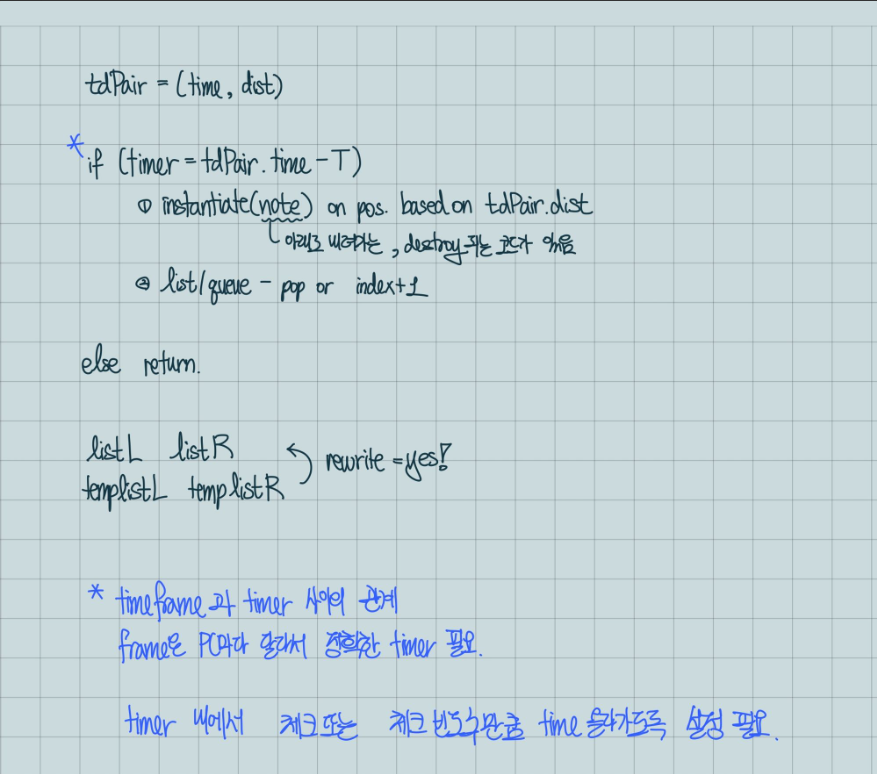 tdPair = (time, dist)
* if (timer = tdPair.time - T)
① instantiate(note) on pos. based on tdPair.dist
아래로 내려가는, destroy되는 코드가 있음
② list/queue - pop or index+1
else return.
listL listR
templistL templistR
rewrite = yes!
* timeframe과 timer 사이의 관계
frame은 PC마다 달라서 정확한 timer 필요.
timer 내에서 체크 또는 체크 빈도수만큼 time 올라가도록 설정 필요.